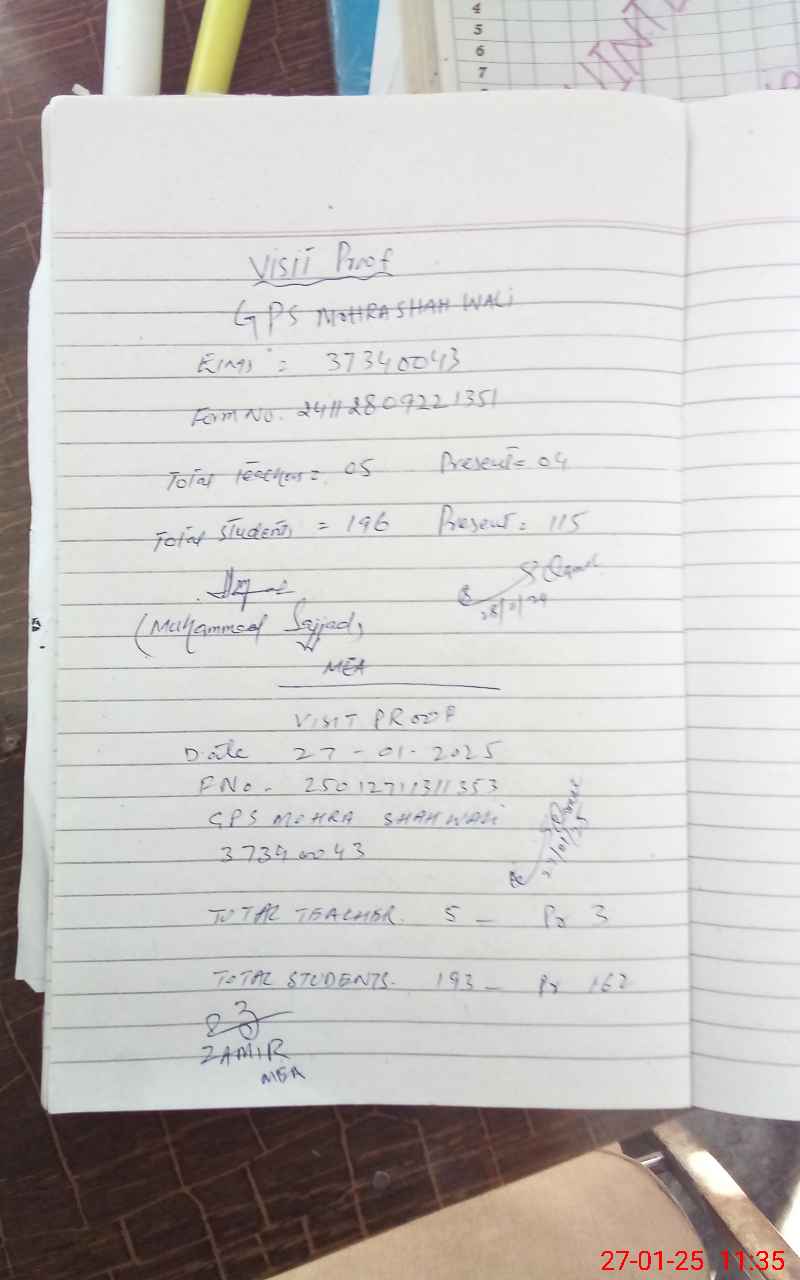 4
5
6
7
Visit Proof
GPS MOHRA SHAH WALI
Emis = 37340043
Form No. 24112809221351
Total teachers = 05 Present = 04
Total students = 196 Present = 115
28/11/24
(Muhammad Sajjad)
MEA
VISIT PROOF
Date 27-01-2025
F No. 25012711311353
GPS MOHRA SHAH WALI
37340043
27/01/25
TOTAL TEACHER. 5 - Pr 3
TOTAL STUDENTS. 193 - Pr 162
ZAMIR
MEA
27-01-25 11:35